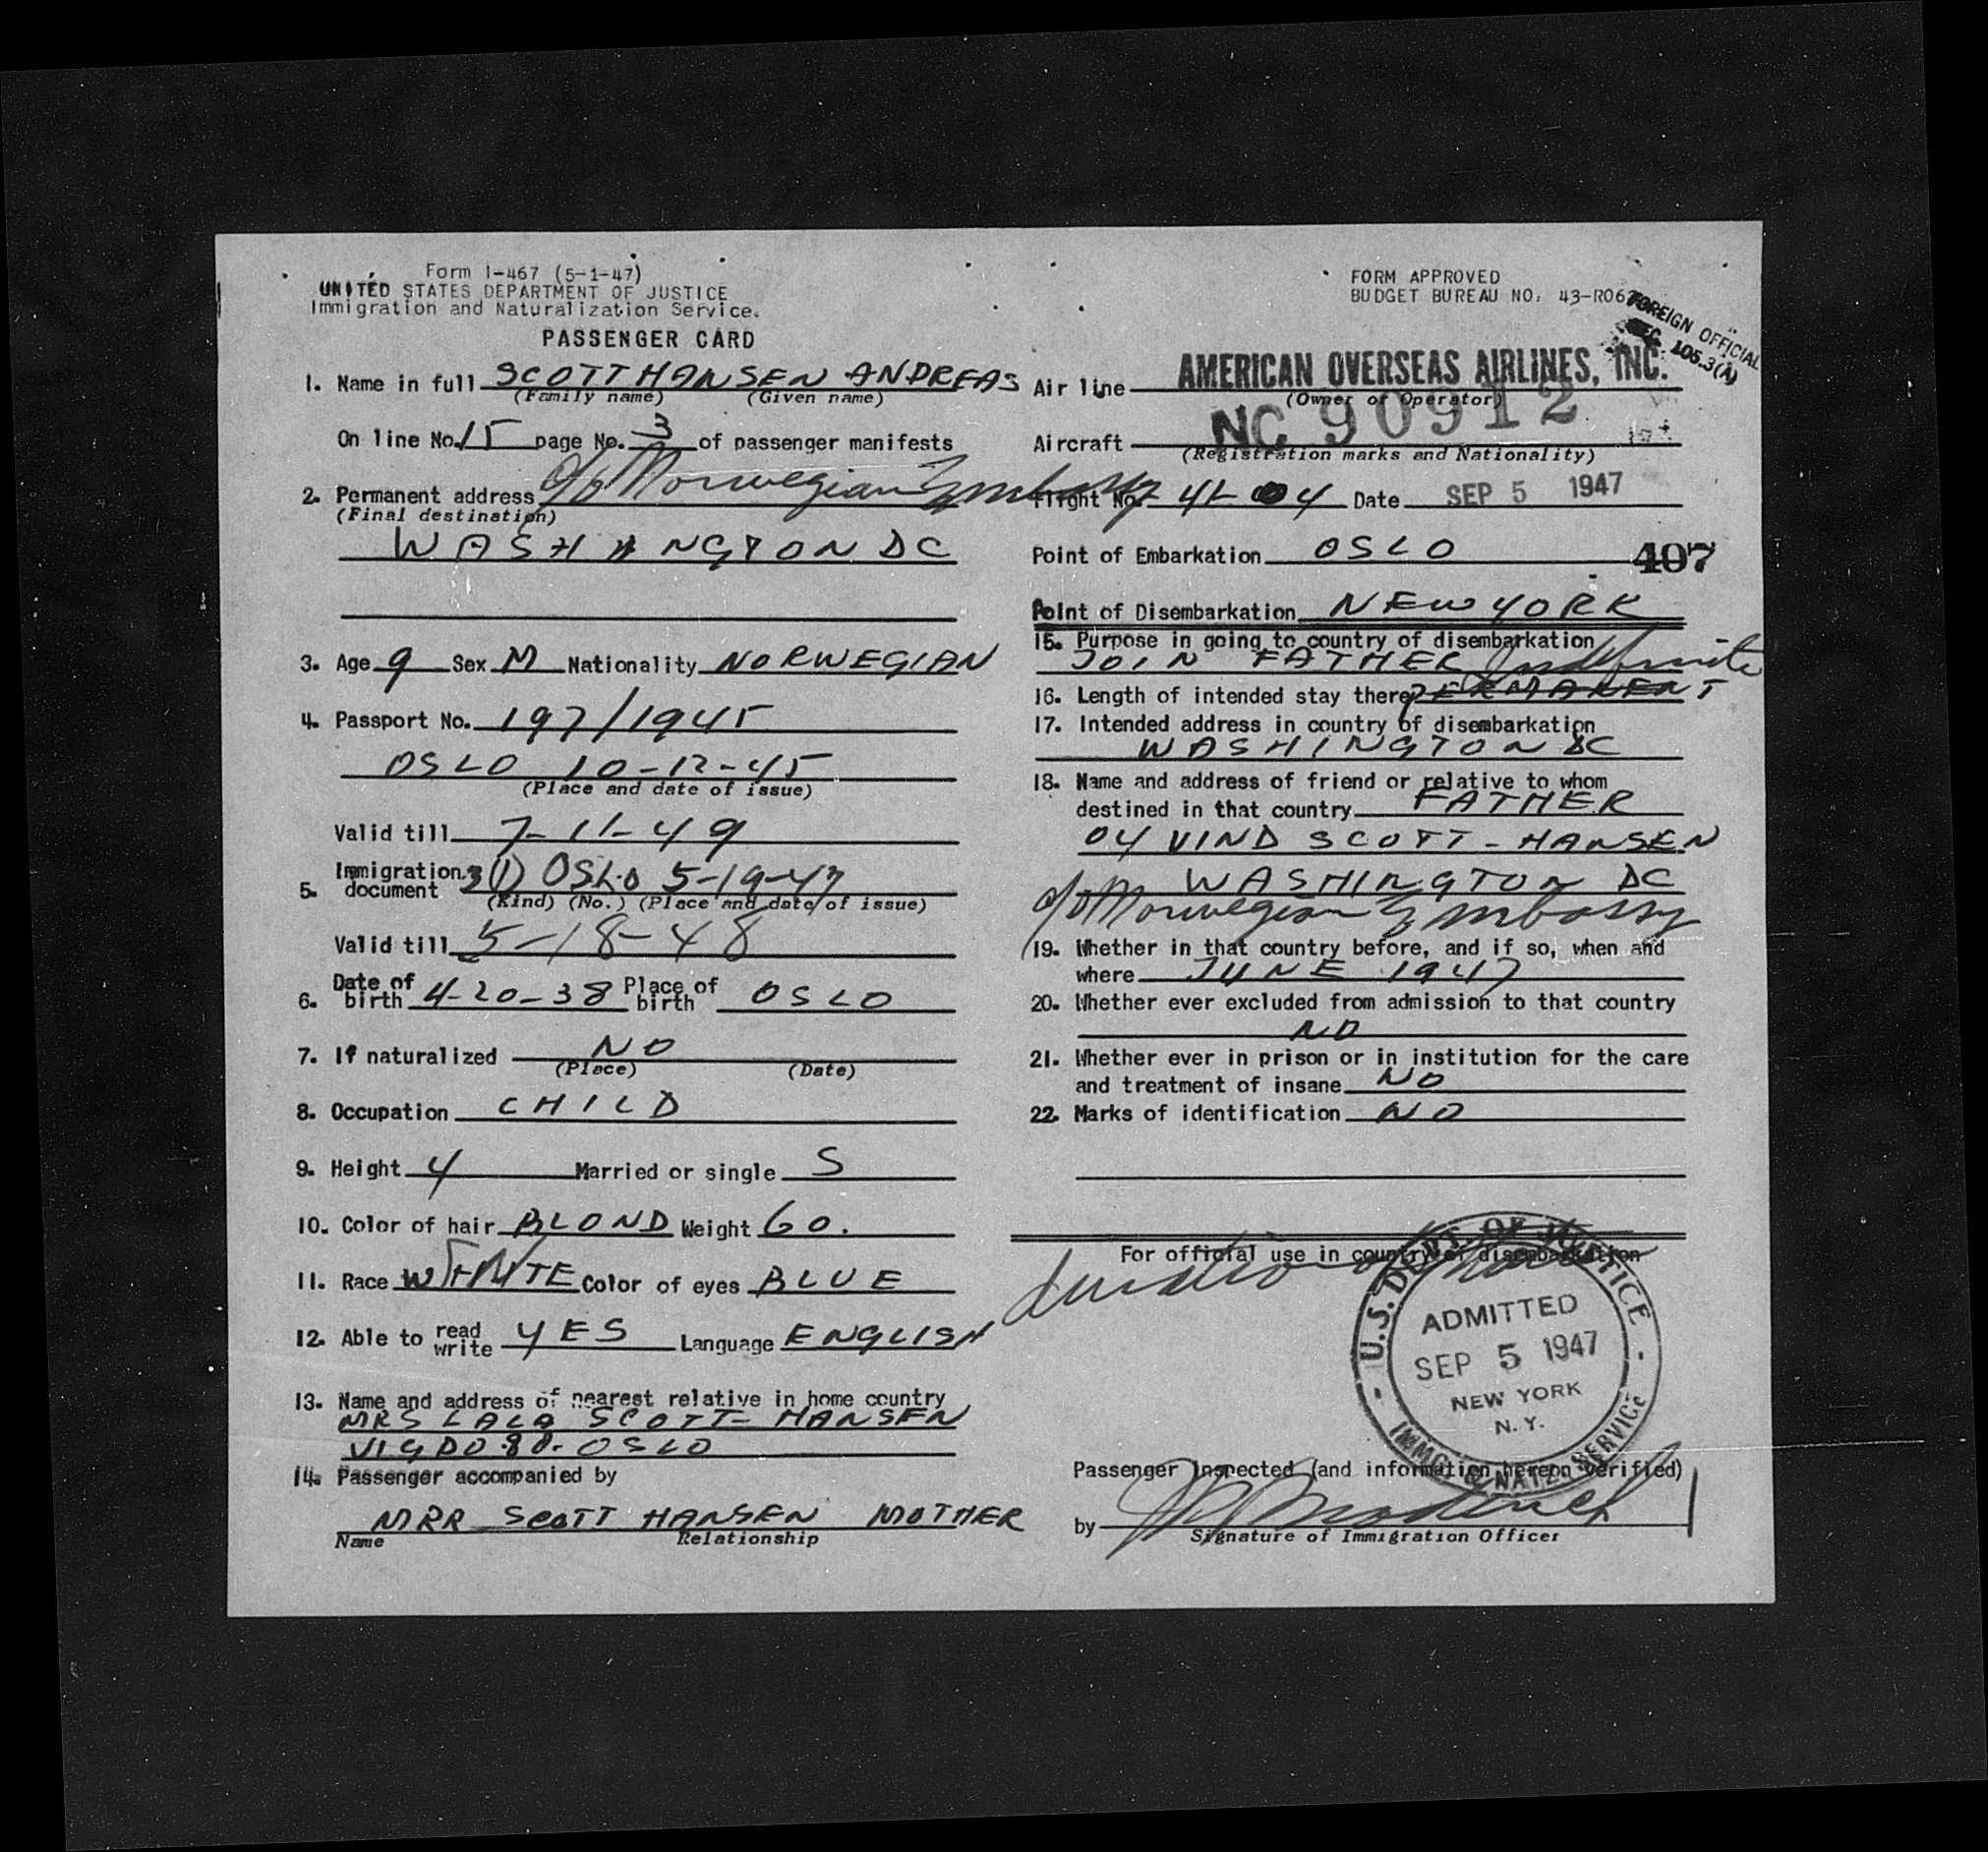 Form I-467 (5-1-47)
UNITED STATES DEPARTMENT OF JUSTICE
Immigration and Naturalization Service.
PASSENGER CARD
FORM APPROVED
BUDGET BUREAU NO. 43-R06
FOREIGN OFFICIAL
SEC. 105.3(A)
1. Name in full SCOTT HANSEN ANDREAS
(Family name) (Given name)
On line No. 15 page No. 3 of passenger manifests
2. Permanent address c/o Norwegian Embassy
(Final destination)
WASHINGTON DC
3. Age 9 Sex M Nationality NORWEGIAN
4. Passport No. 197/1945
OSLO 10-12-45
(Place and date of issue)
Valid till 7-11-49
5. Immigration document 3(1) OSLO 5-19-47
(Kind) (No.) (Place and date of issue)
Valid till 5-18-48
6. Date of birth 4-20-38 Place of birth OSLO
7. If naturalized NO
(Place) (Date)
8. Occupation CHILD
9. Height 4 Married or single S
10. Color of hair BLOND Weight 60.
11. Race WHITE Color of eyes BLUE
12. Able to read write YES Language ENGLISH
13. Name and address of nearest relative in home country
MRS LALA SCOTT-HANSEN
OSLO
14. Passenger accompanied by
MRR SCOTT HANSEN MOTHER
Name Relationship
Air line AMERICAN OVERSEAS AIRLINES, INC.
(Owner or Operator)
Aircraft NC 90912
(Registration marks and Nationality)
Flight No. Date SEP 5 1947
Point of Embarkation OSLO 407
Point of Disembarkation NEW YORK
15. Purpose in going to country of disembarkation
JOIN FATHER Indefinite
16. Length of intended stay there PERMANENT
17. Intended address in country of disembarkation
WASHINGTON DC
18. Name and address of friend or relative to whom
destined in that country FATHER
OYVIND SCOTT-HANSEN
WASHINGTON DC
c/o Norwegian Embassy
19. Whether in that country before, and if so, when and
where JUNE 1947
20. Whether ever excluded from admission to that country
NO
21. Whether ever in prison or in institution for the care
and treatment of insane NO
22. Marks of identification NO
For official use in country of disembarkation
duration of
U.S. DEPT. OF JUSTICE
ADMITTED
SEP 5 1947
NEW YORK
N.Y.
IMMG. & NATZ. SERVICE
Passenger inspected (and information hereon verified)
by
Signature of Immigration Officer